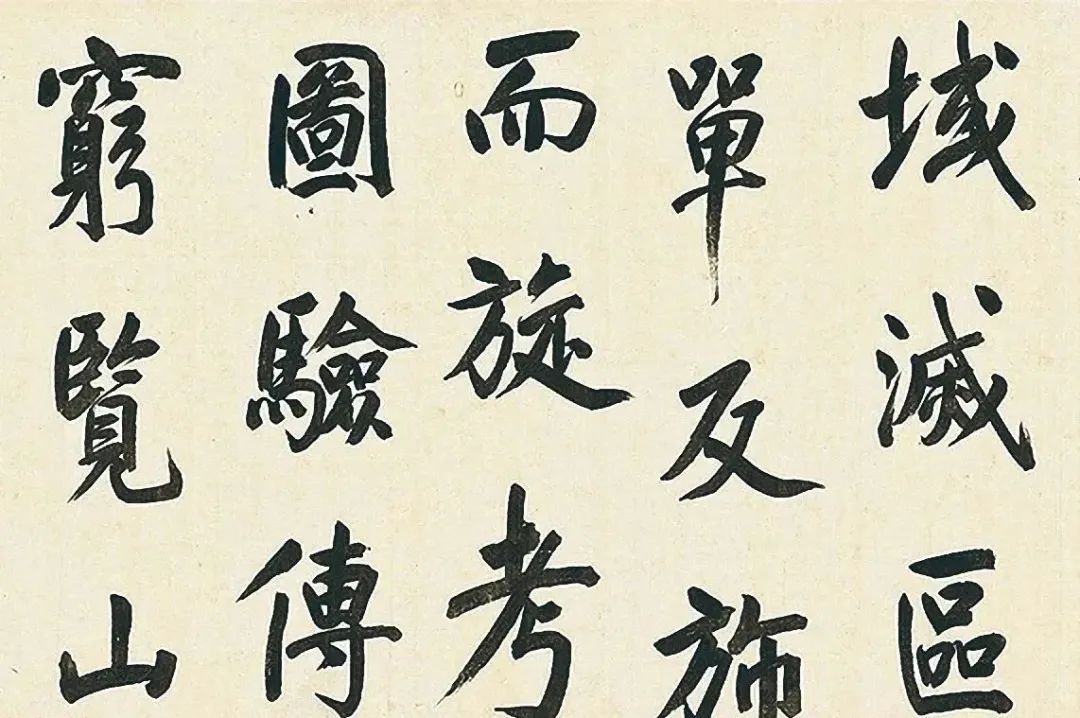 域滅區
單反旆
而旋考
圖驗傳
窮覽山